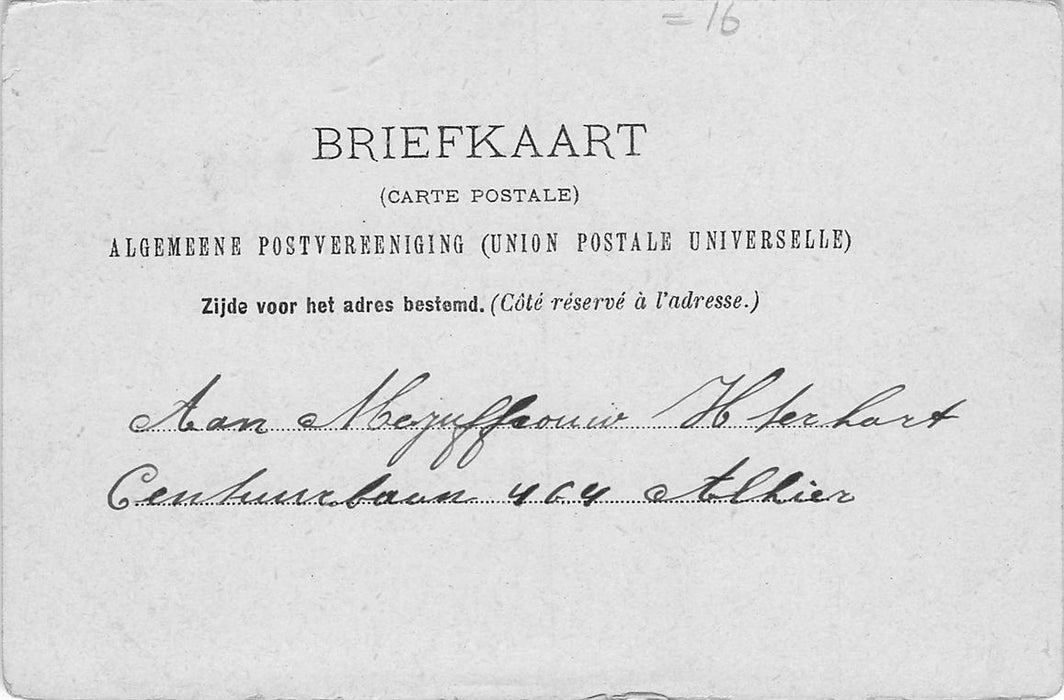 = 16
BRIEFKAART
(CARTE POSTALE)
ALGEMEENE POSTVEREENIGING (UNION POSTALE UNIVERSELLE)
Zijde voor het adres bestemd. (Côté réservé à l'adresse.)
Aan Mejuffrouw H ter hart
Centuurbaan 404 Alhier